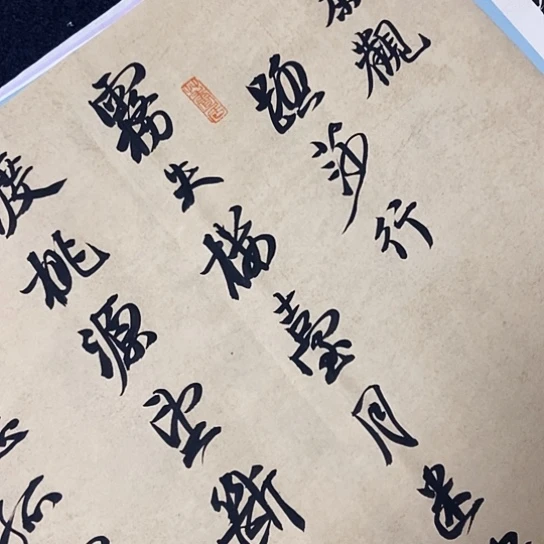 觀
踏莎行
霧失樓臺月迷
渡桃源望斷
孤